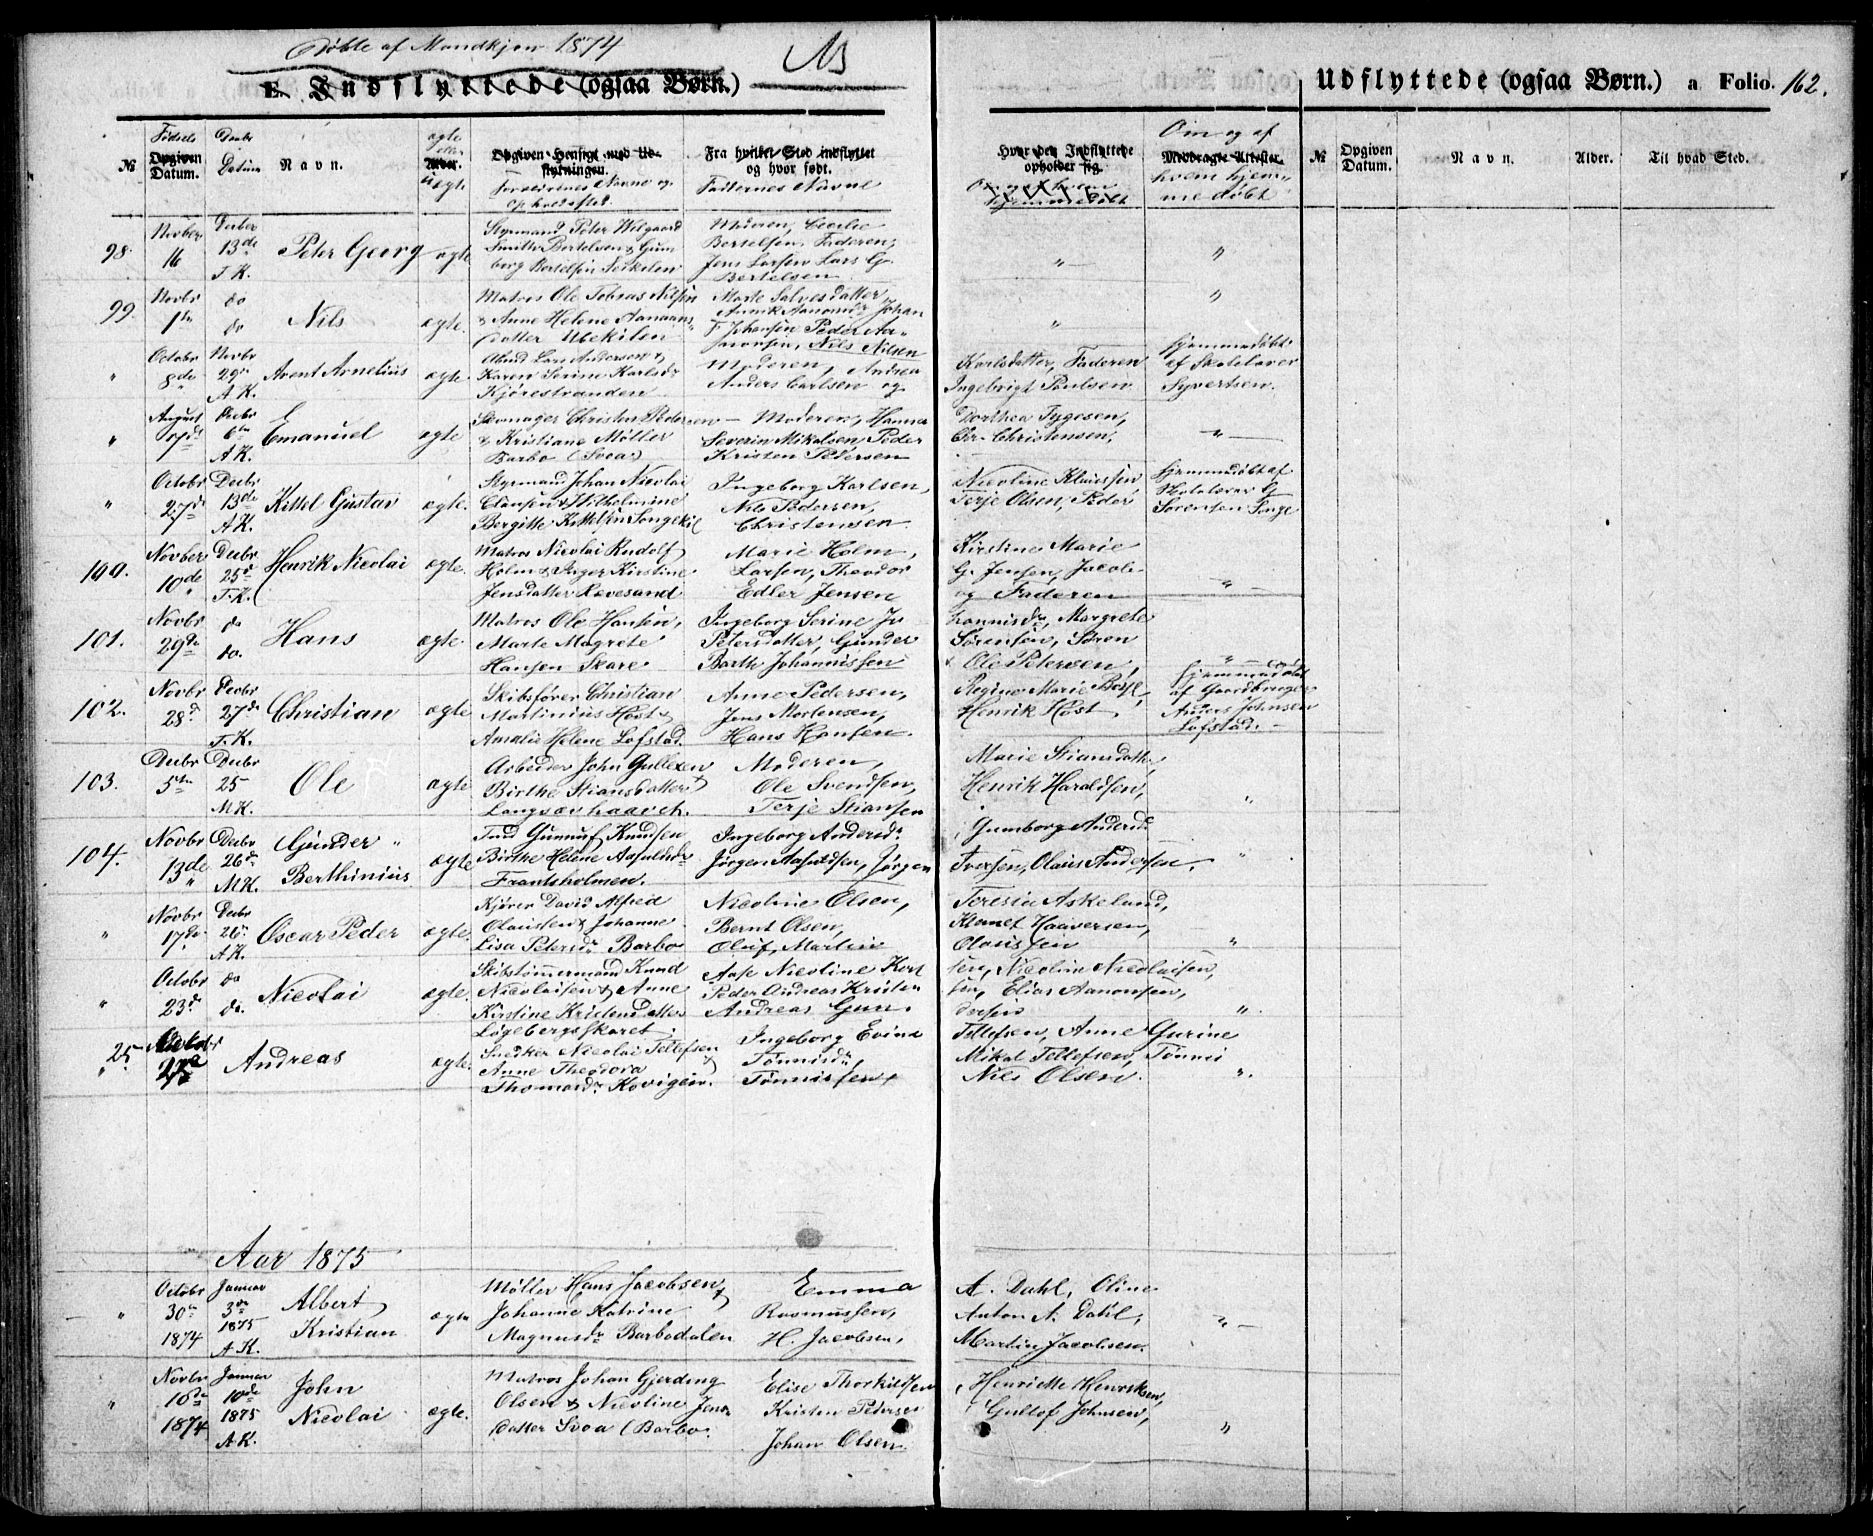 Døbte af Mandkjøn 1874
E. Indflyttede (ogsaa Børn.)
Udflyttede (ogsaa Børn.) a Folio. 162.
No Fødsels Opgiven Datum. Decbr Datum Navn. ægte Alder. uægte Opgiven Hensigt med Udflytningen. Forældrenes Navne og opholdssted. Fra hvilket Sted indflyttet og hvor født. Faddernes Navne
Hvor den Indflyttede opholder sig. Om og af Medbragte Attester. hvem hjemmedøbt No Opgiven Datum. Navn. Alder. Til hvad Sted.
98. Novber 16 Decber 13de T.K. Peter Georg ægte
Styrmand Peter Wilgaard
Smith Bertelsen & Gunborg Bertelsen
Moderen, Cecilie
Bertelsen, Faderen,
Jens Larsen Lars G.
Bertelsen
99 Novbr 1ste do do Nils ægte.
Matros Ole Tobias Nilsen
& Anne Helene Aanons
datter Ubekilen
Marte Salvesdatter
Annik Aanonsdr Johan
F Johansen Peder Aanonsen, Nils Nilsen
" Octobr 8de Novbr 29de A.K. Avent Arnelius ægte.
Lars Andersen &
Karen Serine Karlsdr
Kjørestranden
Moderen, Andrea
Anders Carlsen og
Karlsdatter, Faderen
Ingebrigt Paulsen
hjemmedøbt
af Skolelærer
Syvertsen.
" August 7de Decbr 6te A.K. Emanuel ægte
Skomager Christen Pedersen
& Kristiane Møller
Barbo (Svoa)
Moderen, Hanna
Severin Mikalsen Peder
Kristen Petersen
Dorthea Tygesen,
Chr. Christensen,
" Octobr 27de Decbr 13de A.K. Kittel Gustav ægte.
Styrmand Johan Nicolai
Clausen & Wilhelmine
Bergitte Kittelsen Songekil
Ingeborg Karlsen,
Nils Pedersen,
Christensen
Nicoline Klaussen
Terje Olsen, Peder
hjemmedøbt af
Skolelærer G
Sørensen Songe
100. Novber 10de Decbr 25de T.K. Henrik Nicolai ægte.
Matros Nicolai Rudolf
Holm & Inger Kirstine
Jensdatter Rævesand
Marie Holm,
Larsen, Theodor
Edler Jensen
Kirstine Marie
G. Jensen, Jacob
og Faderen
101. Novbr 29de do do. Hans ægte.
Matros Ole Hansen,
Marte Magrete
Hansen Skare
Ingeborg Serine Jo
Petersdatter, Gunder
Barth Johannissen
hannisdr, Margrete
Sørensen, Søren
& Ole Petersen,
102. Novbr 28de Decbr 27de T.K. Christian ægte
Skibsfører Christian
Martinius Høst &
Amalie Helene Lofstad.
Anne Pedersen,
Jens Mortensen,
Hans Hansen.
Regine Marie Boye,
Henrik Høst,
hjemmedøbt
af Gaardbruger
Anders Johnsen
Lofstad.
103. Decbr 5te Decbr 25 M.K. Ole ægte
Arbeider John Gullexen
Birthe Stiansdatter
Langsævhaavet.
Moderen,
Ole Svendsen,
Terje Stiansen
Marie Stiansdatter,
Henrik Haraldsen,
104. Novbr 13de Decbr 26de M.K. Gunder Berthinius ægte
Gunnuf Knudsen
Birthe Helene Aasulfsdr
Frantsholmen.
Ingeborg Andersdr
Jørgen Aasulfsen, Jørgen
Gumborg Andersdr
Iversen, Olaus Andersen.
" Novbr 17de Decbr 26de A.K. Oscar Peder ægte.
Kjører David Alfred
Olaussen & Johanne
Lisa Petersdr Barbo
Nicoline Olsen,
Bernt Olsen,
Oluf, Martin
Teresia Askeland,
Klemet Haaversen,
Olaussen
" Octobr 23de do do. Nicolai ægte.
Skibstømmermand Knud
Nicolaisen & Anne
Kirstine Kristensdatter
Løgebergsskaret
Aase Nicoline Kort
Peder Andreas Kristen
Andreas Gun.
sen, Nicoline Nicolaisen,
sen, Elias Aanonsen,
dersen
25 Andreas ægte.
Snedker Nicolai Tellefsen
Anne Theodora
Thomasdr Kovigen.
Ingeborg Evine
Tønnisdr,
Tønnissen
Tellefsen, Anne Gurine
Mikal Tellefsen, Tønnes
Nils Olsen.
Aar 1875
" Octobr 30te 1874 Januar 3de 1875 A.K. Albert Kristian ægte
Møller Hans Jacobsen
Johanne Katrine
Magnusdr Barbodalen
Emma
Rasmussen,
H. Jacobsen,
A. Dahl, Oline
Anton A. Dahl,
Martin Jacobsen.
" Novbr 16de 1874 Januar 10de 1875 A.K. John Nicolai ægte.
Matros Johan Gjerding
Olsen & Nicoline Jens
datter Svoa (Barbo.
Elise Thorkildsen
Kristen Petersen
Johan Olsen
Henriette Henriksen,
Gullof Johnsen,